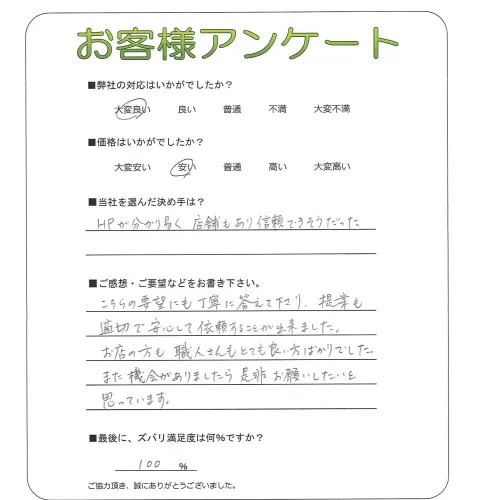 お客様アンケート
■弊社の対応はいかがでしたか?
大変良い 良い 普通 不満 大変不満
■価格はいかがでしたか?
大変安い 安い 普通 高い 大変高い
■当社を選んだ決め手は?
HPが分かり易く 店舗もあり信頼できそうだった
■ご感想・ご要望などをお書き下さい。
こちらの要望にも丁寧に答えて下さり、提案も
適切で安心して依頼することが出来ました。
お店の方も職人さんもとても良い方ばかりでした。
また機会がありましたら是非お願いしたいと
思っています。
■最後に、ズバリ満足度は何%ですか?
100 %
ご協力頂き、誠にありがとうございました。